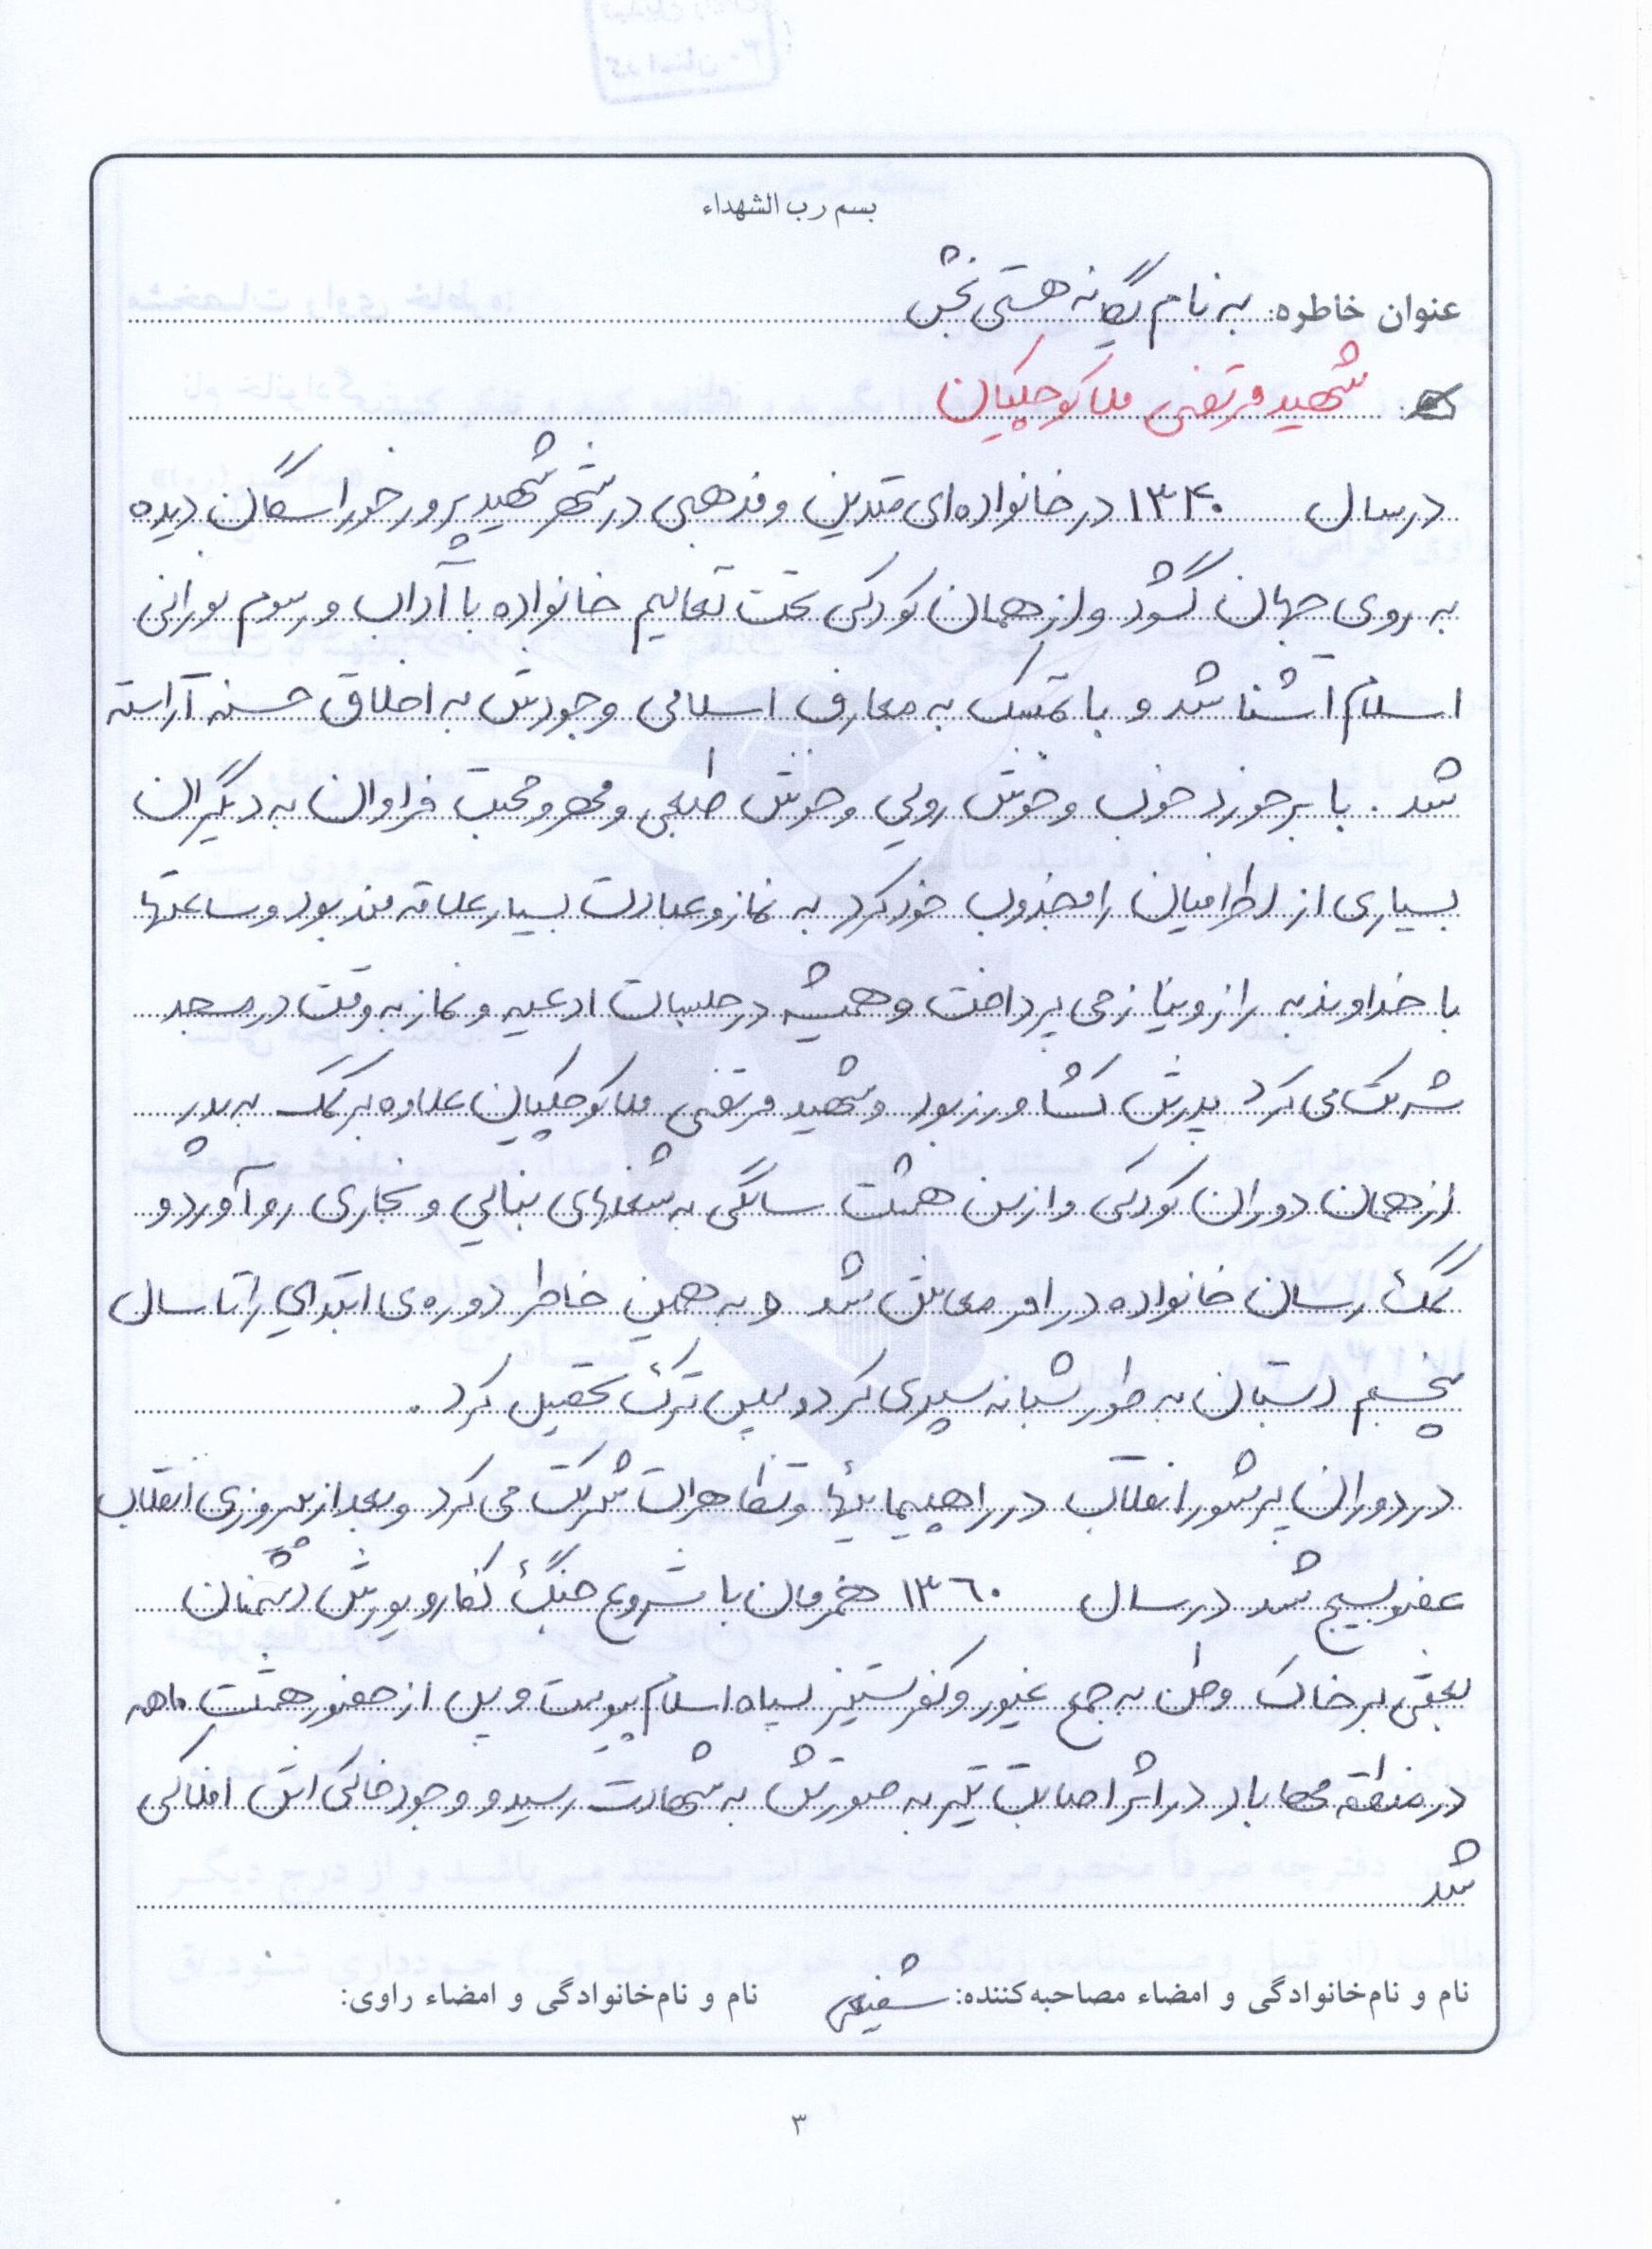 بسم رب الشهداء
عنوان خاطره: به نام یگانه هستی بخش
شهید مرتضی ملا کوچکیان
در سال ۱۳۴۰ در خانواده‌ای متدین و مذهبی در شهر شهید پرور خوراسگان دیده
به روی جهان گشود و از همان کودکی تحت تعالیم خانواده با آداب و رسوم نورانی
اسلام آشنا شد و با تمسک به معارف اسلامی وجودش به اخلاق حسنه آراسته
شد. با برخورد خوب و خوش رویی و خوش طبعی و مهر و محبت فراوان به دیگران
بسیاری از اطرافیان را مجذوب خود کرد به نماز و عبادت بسیار علاقه مند بود و ساعتها
با خداوند به راز و نیاز می پرداخت و همیشه در جلسات ادعیه و نماز به وقت در مسجد
شرکت می کرد پدرش کشاورز بود و شهید مرتضی ملا کوچکیان علاوه بر کمک به پدر
از همان دوران کودکی و از سن هشت سالگی به شغلهای بنایی و نجاری رو آورد و
کمک رسان خانواده در امر معاش شد و به همین خاطر دوره‌ی ابتدایی را تا سال
پنجم دبستان به طور شبانه سپری کرد و سپس ترک تحصیل کرد.
در دوران پر شور انقلاب در راهپیماییها و تظاهرات شرکت می کرد و بعد از پیروزی انقلاب
عضو بسیج شد در سال ۱۳۶۰ همزمان با شروع جنگ کفار و یورش دشمنان
بعثی بر خاک وطن به جمع غیور و کفر ستیز سپاه اسلام پیوست و پس از حضور هشت ماهه
در منطقه مهاباد در اثر اصابت تیر به صورتش به شهادت رسید و وجود خاکی اش افلاکی
شد
نام و نام‌خانوادگی و امضاء مصاحبه‌کننده: شفیعی نام و نام‌خانوادگی و امضاء راوی:
۳